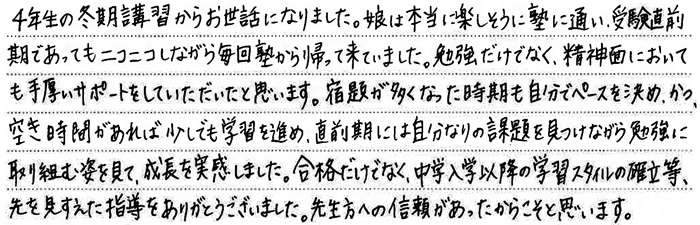 4年生の冬期講習からお世話になりました。娘は本当に楽しそうに塾に通い、受験直前
期であってもニコニコしながら毎回塾から帰って来ていました。勉強だけでなく、精神面において
も手厚いサポートをしていただいたと思います。宿題が多くなった時期も自分でペースを決め、かつ
空き時間があれば少しでも学習を進め、直前期には自分なりの課題を見つけながら勉強に
取り組む姿を見て、成長を実感しました。合格だけでなく、中学入学以降の学習スタイルの確立等、
先を見すえた指導をありがとうございました。先生方への信頼があったからこそと思います。